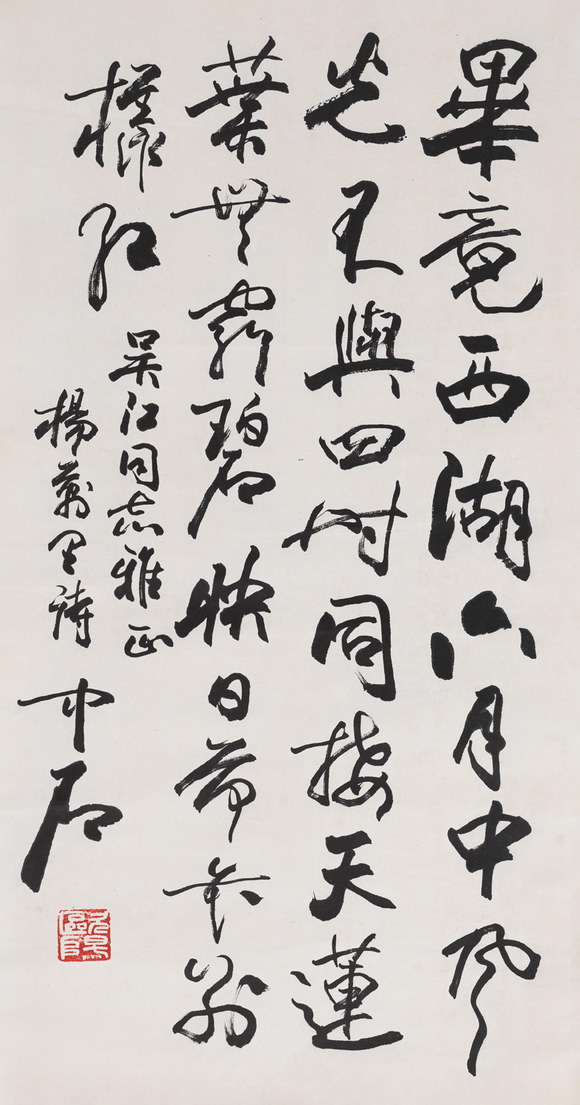 畢竟西湖六月中風
光不與四時同接天蓮
葉無窮碧映日荷花別
樣紅
吳江同志雅正
楊萬里詩 中石